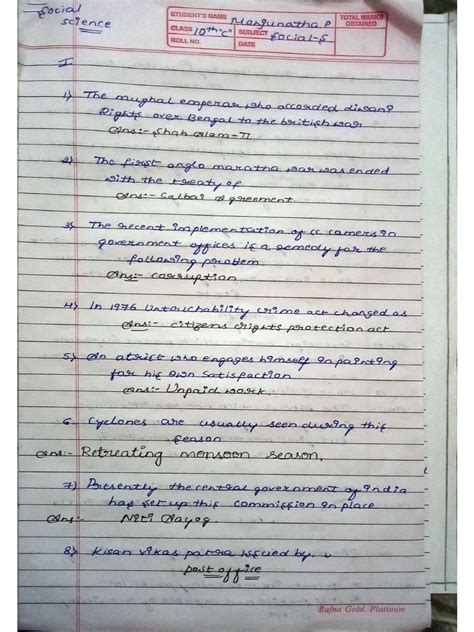 Social
science
STUDENT'S NAME Manjunatha.P
TOTAL MARKS OBTAINED
CLASS 10th "C" SUBJECT Social-S
ROLL NO. DATE
I
1) The mughal emperar who accorded diwani
Rights over Bengal to the british war
Ans:- Shah Alam-II
2) The first anglo maratha war was ended
with the treaty of
Ans:- Salbai Agreement
3) The recent implementation of cc camers in
government offices is a remedy for the
following problem
Ans:- corruption
4) In 1976 Untouchability crime act changed as
Ans:- citizens rights protection act
5) An atrist who engages himself in painting
for his own satisfaction
Ans:- Unpaid work.
6. Cyclones are usually seen during this
season
Ans:- Retreating monsoon season.
7) Presently the central government of india
has set up this commission in place
Ans:- Niti Aayog
8) Kisan vikas patra issued by.
post office
Bafna Gold. Platinum